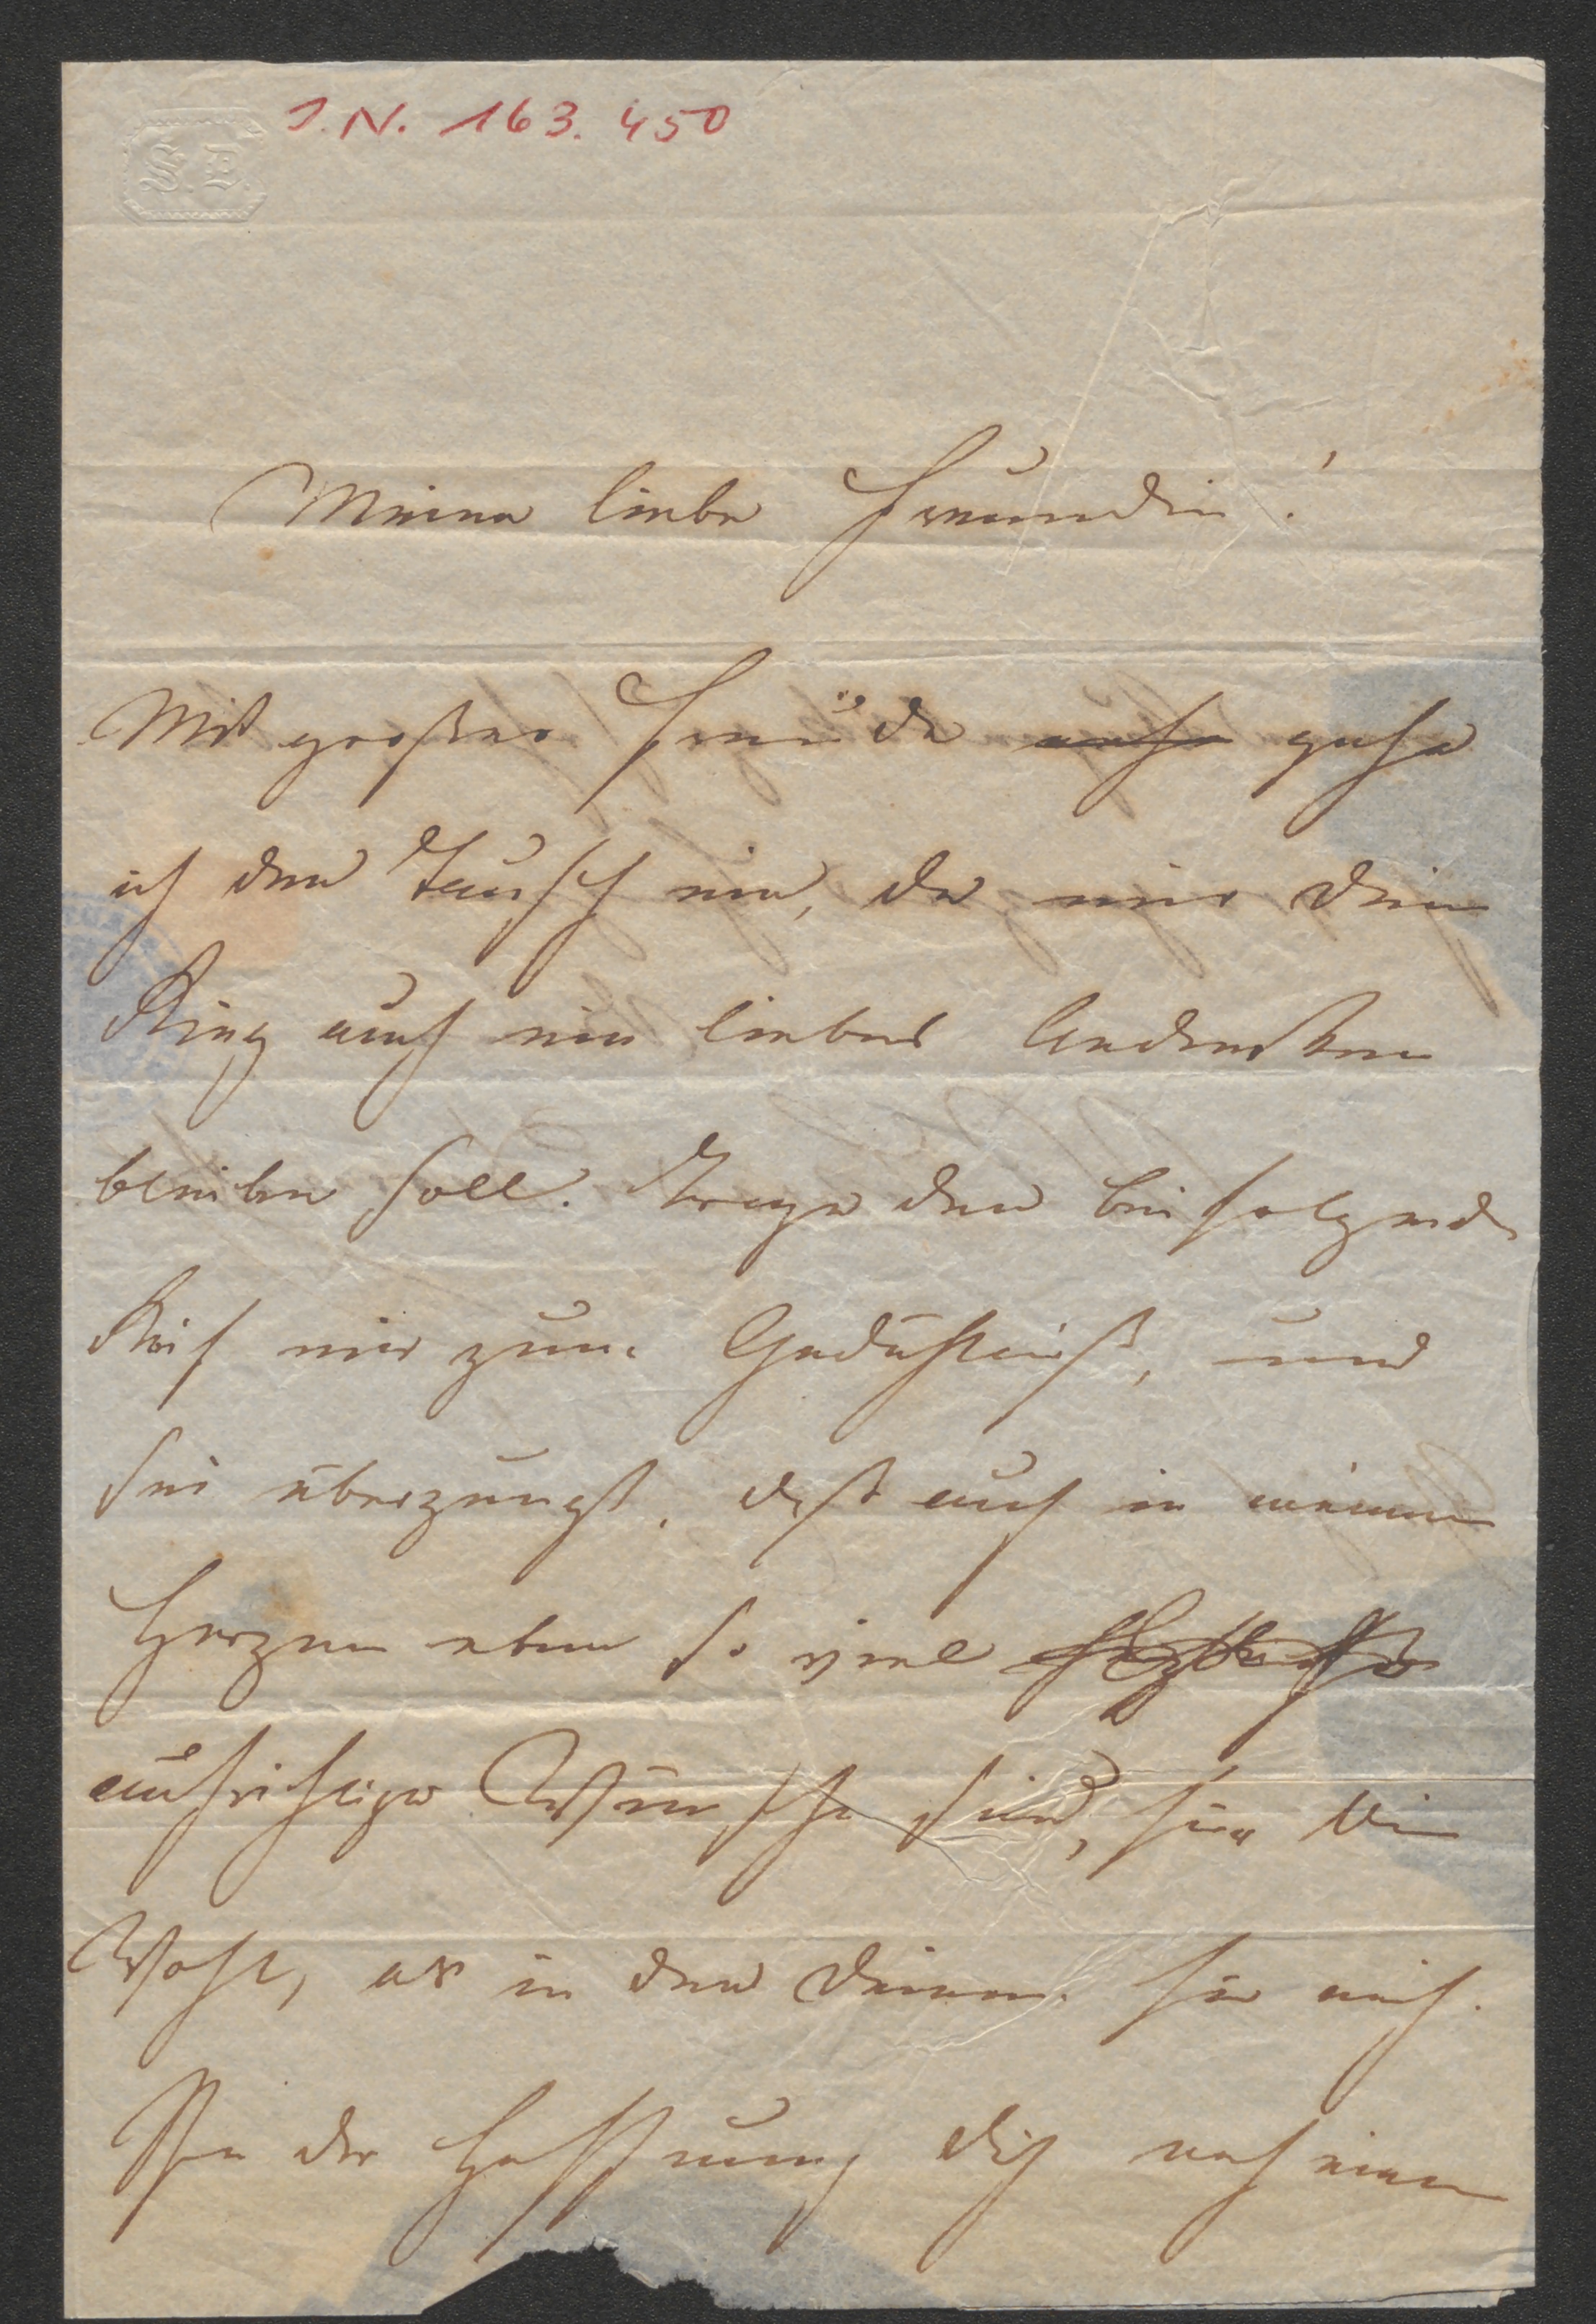 I.N. 163.450
Meine liebe Freundin!
Mit großer Freude gehe
ich den Tausch ein, da mir Dein
Ring auch ein liebes Andenken
bleiben soll. Trage den beifolgenden
Reif mir zum Gedächtniß, und
sei überzeugt, daß auch in meinem
Herzen eben so viel
aufrichtige Wünsche sind, für Dein
Wohl, als in dem Deinen für mich.
In der Hoffnung Dich noch einen